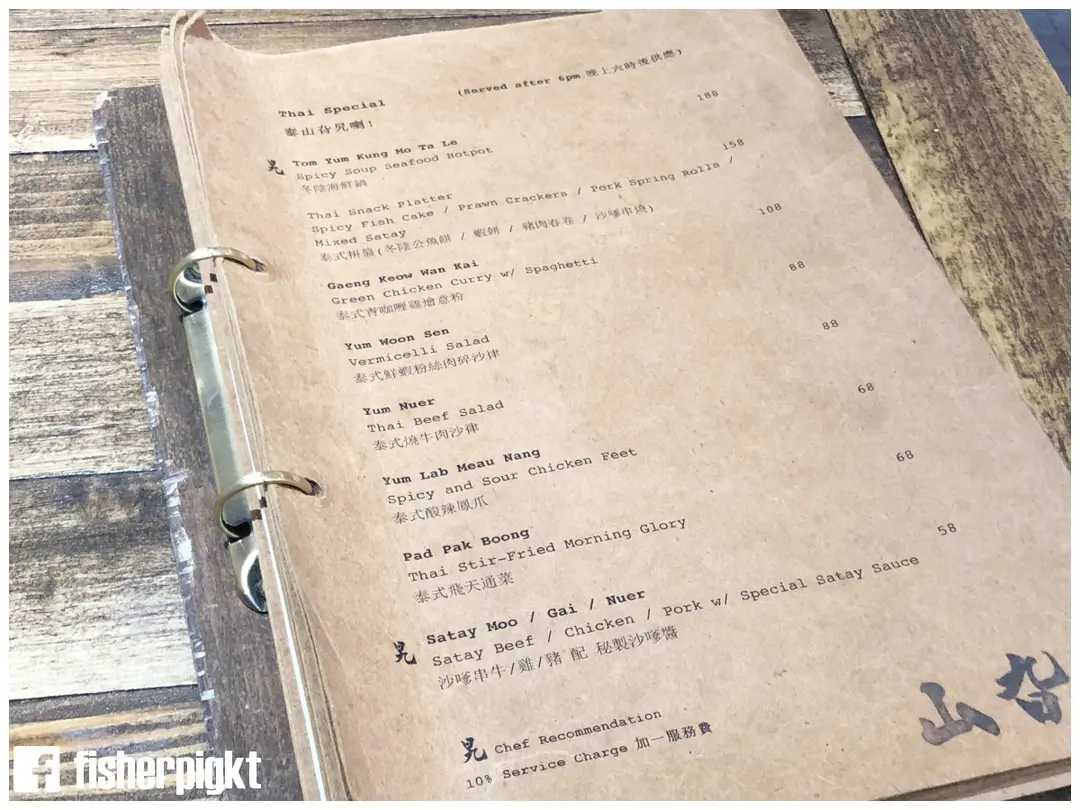 Thai Special
(Served after 6pm 晚上六時後供應)
泰山旮旯喇!
188
旯 Tom Yum Kung Mo Ta Le
Spicy Soup Seafood Hotpot
冬陰海鮮鍋
158
Thai Snack Platter
Spicy Fish Cake / Prawn Crackers / Pork Spring Rolls /
Mixed Satay
泰式拼盤(冬陰公魚餅 / 蝦餅 / 豬肉春卷 / 沙嗲串燒)
108
Gaeng Keow Wan Kai
Green Chicken Curry w/ Spaghetti
泰式青咖喱雞燴意粉
88
Yum Woon Sen
Vermicelli Salad
泰式鮮蝦粉絲肉碎沙律
88
Yum Nuer
Thai Beef Salad
泰式燒牛肉沙律
68
Yum Lab Meau Nang
Spicy and Sour Chicken Feet
泰式酸辣鳳爪
68
Pad Pak Boong
Thai Stir-Fried Morning Glory
泰式飛天通菜
58
旯 Satay Moo / Gai / Nuer
Satay Beef / Chicken / Pork w/ Special Satay Sauce
沙嗲串牛/雞/豬 配 秘製沙嗲醬
旯 Chef Recommendation
10% Service Charge 加一服務費
山旮
fisherpigkt